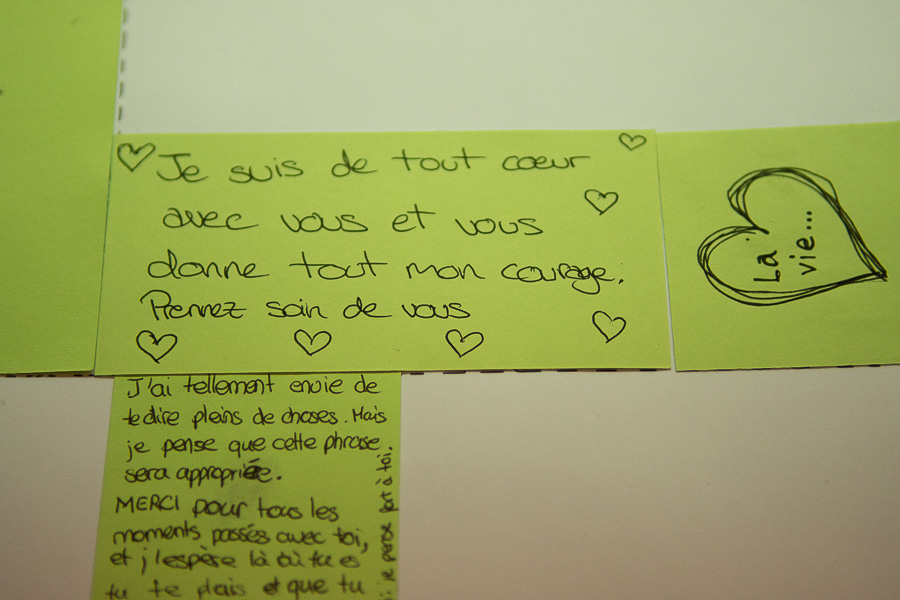 Je suis de tout cœur
avec vous et vous
donne tout mon courage.
Prennez soin de vous
La
vie...
J'ai tellement envie de
te dire pleins de choses. Mais
je pense que cette phrase
sera appropriée.
MERCI pour tous les
moments passés avec toi,
et j'espère là où tu es
tu te plais et que tu
je pense fort à toi.